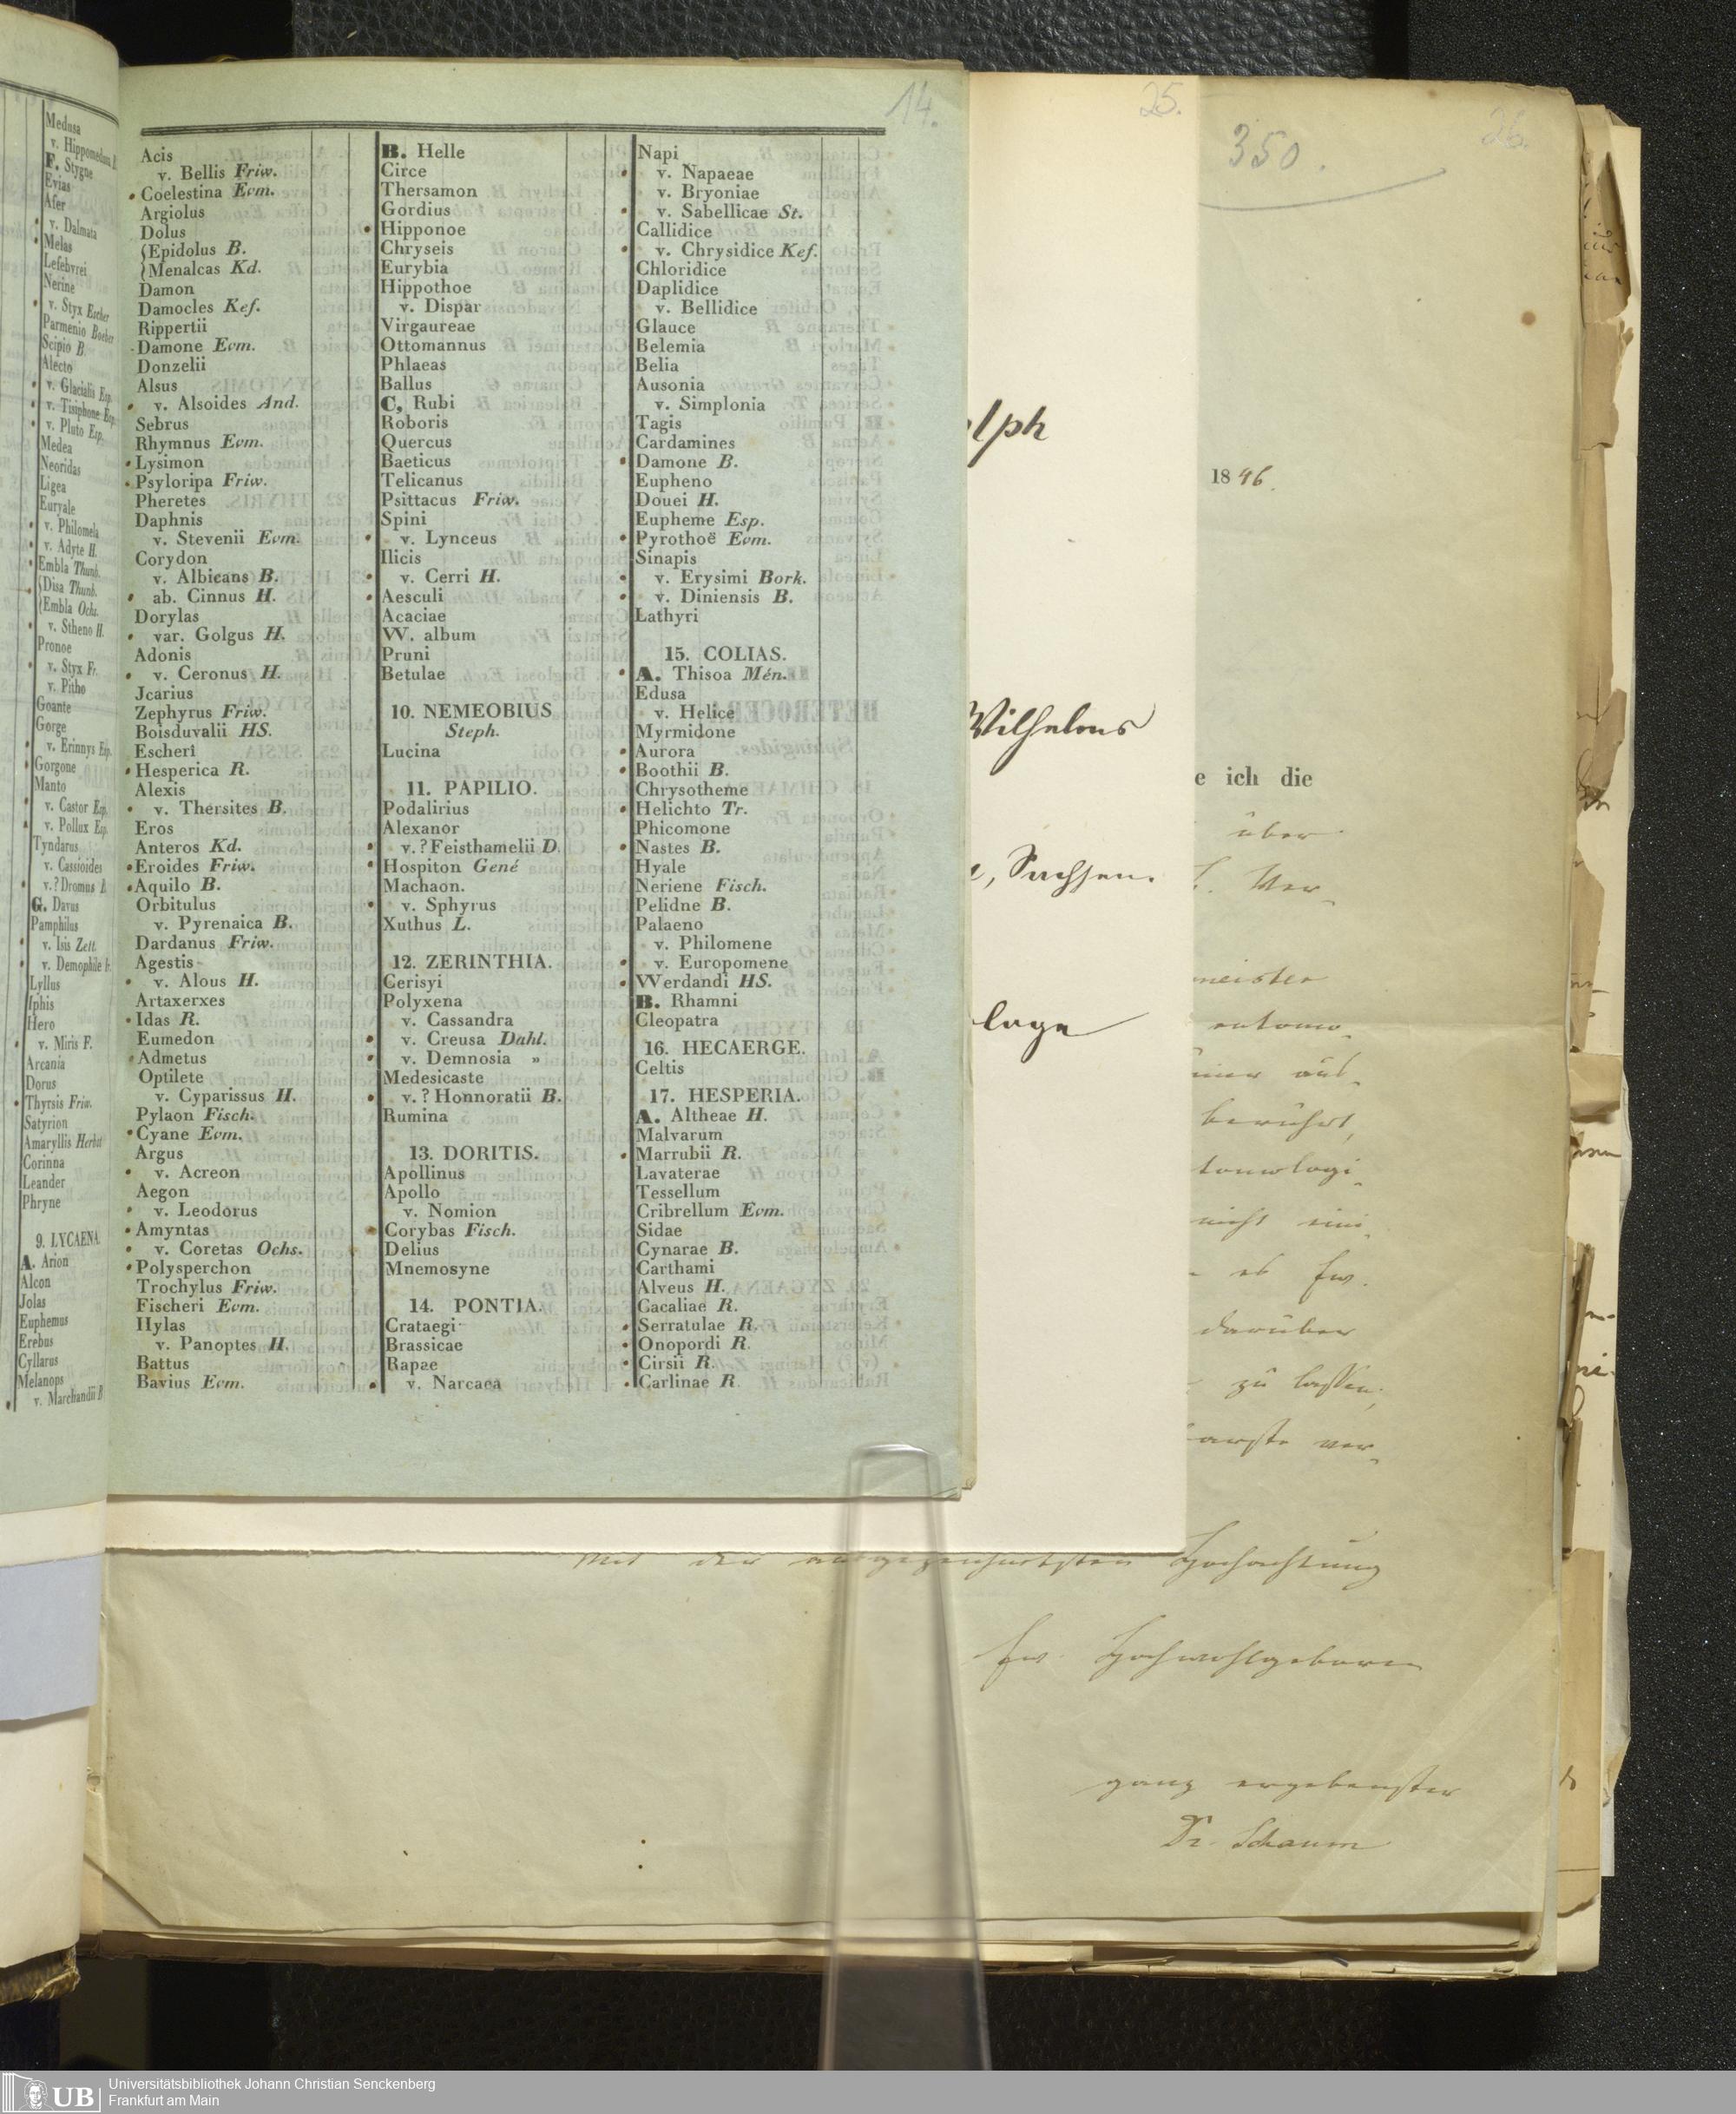 Medusa
v. Hippomedusa
F. Stygne
Evias
Afer
v. Dalmata
Melas
Lefebvrei
Nerine
v. Styx Escher
Parmenio Boeber
Scipio B.
Alecto
v. Glacialis Esp.
v. Tisiphone Esp.
v. Pluto Esp.
Medea
Neoridas
Ligea
Euryale
v. Philomela
v. Adyte H.
Embla Thunb.
Disa Thunb.
Embla Ochs.
v. Stheno H.
Pronoe
v. Styx Fr.
v. Pitho
Goante
Gorge
v. Erinnys Esp.
Gorgone
Manto
v. Castor Esp.
v. Pollux Esp.
Tyndarus
v. Cassioides
v.? Dromus
G. Davus
Pamphilus
v. Isis Zett.
v. Demophile
Lyllus
Iphis
Hero
v. Miris F.
Arcania
Dorus
Thyrsis Friw.
Satyrion
Amaryllis Herbst
Corinna
Leander
Phryne
9. LYCAENA.
A. Arion
Alcon
Jolas
Euphemus
Erebus
Cyllarus
Melanops
v. Marchandii B.
14.
Acis
v. Bellis Friw.
Coelestina Evm.
Argiolus
Dolus
{Epidolus B.
{Menalcas Kd.
Damon
Damocles Kef.
Rippertii
Damone Evm.
Donzelii
Alsus
v. Alsoides And.
Sebrus
Rhymnus Evm.
Lysimon
Psyloripa Friw.
Pheretes
Daphnis
v. Stevenii Evm.
Corydon
v. Albicans B.
ab. Cinnus H.
Dorylas
var. Golgus H.
Adonis
v. Ceronus H.
Jcarius
Zephyrus Friw.
Boisduvalii HS.
Escheri
Hesperica R.
Alexis
v. Thersites B.
Eros
Anteros Kd.
Eroides Friw.
Aquilo B.
Orbitulus
v. Pyrenaica B.
Dardanus Friw.
Agestis
v. Alous H.
Artaxerxes
Idas R.
Eumedon
Admetus
Optilete
v. Cyparissus H.
Pylaon Fisch.
Cyane Evm.
Argus
v. Acreon
Aegon
v. Leodorus
Amyntas
v. Coretas Ochs.
Polysperchon
Trochylus Friw.
Fischeri Evm.
Hylas
v. Panoptes H.
Battus
Bavius Evm.
B. Helle
Circe
Thersamon
Gordius
Hipponoe
Chryseis
Eurybia
Hippothoe
v. Dispar
Virgaureae
Ottomannus
Phlaeas
Ballus
C, Rubi
Roboris
Quercus
Baeticus
Telicanus
Psittacus Friw.
Spini
v. Lynceus
Ilicis
v. Cerri H.
Aesculi
Acaciae
W. album
Pruni
Betulae
10. NEMEOBIUS
Steph.
Lucina
11. PAPILIO.
Podalirius
Alexanor
v.? Feisthamelii D.
Hospiton Gené
Machaon.
v. Sphyrus
Xuthus L.
12. ZERINTHIA.
Cerisyi
Polyxena
v. Cassandra
v. Creusa Dahl.
v. Demnosia »
Medesicaste
v.? Honnoratii B.
Rumina
13. DORITIS.
Apollinus
Apollo
v. Nomion
Corybas Fisch.
Delius
Mnemosyne
14. PONTIA.
Crataegi
Brassicae
Rapae
v. Narcaea
Napi
v. Napaeae
v. Bryoniae
v. Sabellicae St.
Callidice
v. Chrysidice Kef.
Chloridice
Daplidice
v. Bellidice
Glauce
Belemia
Belia
Ausonia
v. Simplonia
Tagis
Cardamines
Damone B.
Eupheno
Douei H.
Eupheme Esp.
Pyrothoë Evm.
Sinapis
v. Erysimi Bork.
v. Diniensis B.
Lathyri
15. COLIAS.
A. Thisoa Mén.
Edusa
v. Helice
Myrmidone
Aurora
Boothii B.
Chrysotheme
Helichto Tr.
Phicomone
Nastes B.
Hyale
Neriene Fisch.
Pelidne B.
Palaeno
v. Philomene
v. Europomene
Werdandi HS.
B. Rhamni
Cleopatra
16. HECAERGE.
Celtis
17. HESPERIA.
A. Altheae H.
Malvarum
Marrubii R.
Lavaterae
Tessellum
Cribrellum Evm.
Sidae
Cynarae B.
Carthami
Alveus H.
Cacaliae R.
Serratulae R.
Onopordi R.
Cirsii R.
Carlinae R.
25.
lph
Wilhelms
, Sachsen.
loge
26.
350.
1846.
e ich die
über
meister
entomo-
berührt,
tomologi-
nicht
es Ew.
darüber
zu lassen,
Mit der ausgezeichnetsten Hochachtung
Ew. Hochwohlgeboren
ganz ergebenster
Dr. Schaum
UB
Universitätsbibliothek Johann Christian Senckenberg
Frankfurt am Main